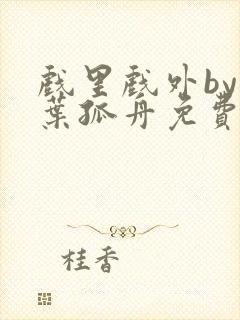 戏里戏外by
葉孤舟免費
桂香